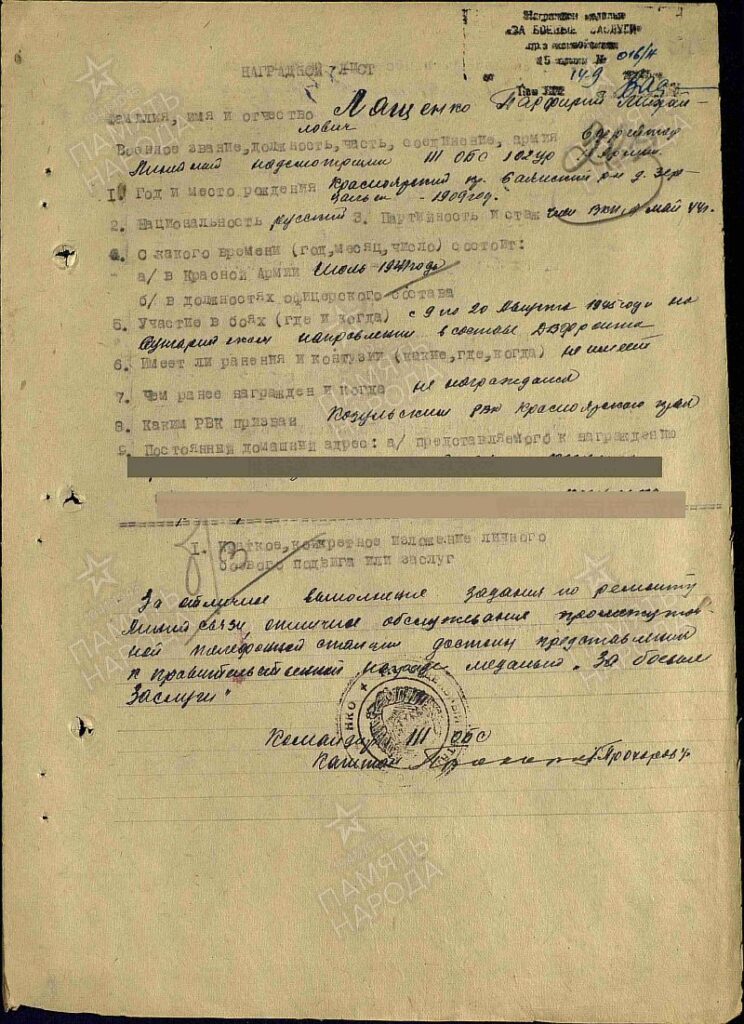 Награжден медалью
"ЗА БОЕВЫЕ ЗАСЛУГИ"
15 армии № 016/н
149
НАГРАДНОЙ ЛИСТ
Фамилия, имя и отчество Лащенко Парфирий Михай-
лович
Военное звание, должность, часть, соединение, армия ефрейтор
Линейный надсмотрщик III ОБС 102 ур Армии
1. Год и место рождения Красноярский кр.
1909 год.
2. Национальность русский 3. Партийность и стаж член ВКП/б май 44 г.
4. С какого времени (год, месяц, число) состоит:
а/ в Красной Армии Июль 1941 года
б/ в должностях офицерского состава
5. Участие в боях (где и когда) с 9 по 20 Августа 1945 года на
Сунгарийском направлении в составе ДВ Фронта
6. Имеет ли ранения и контузии (какие, где, когда) не имеет
7. Чем ранее награжден и когда не награждался
8. Каким РВК призван Козульским РВК Красноярского края
9. Постоянный домашний адрес: а/ представляемого к награждению
I. Краткое, конкретное изложение личного
боевого подвига или заслуг
За отличное выполнение задания по ремонту
линий связи отличное обслуживание промежуточ-
ной телефонной станции достоин представления
к правительственной награде медалью "За боевые
Заслуги"
Командир III ОБС
Капитан /Прохоров/
ПАМЯТЬ
НАРОДА